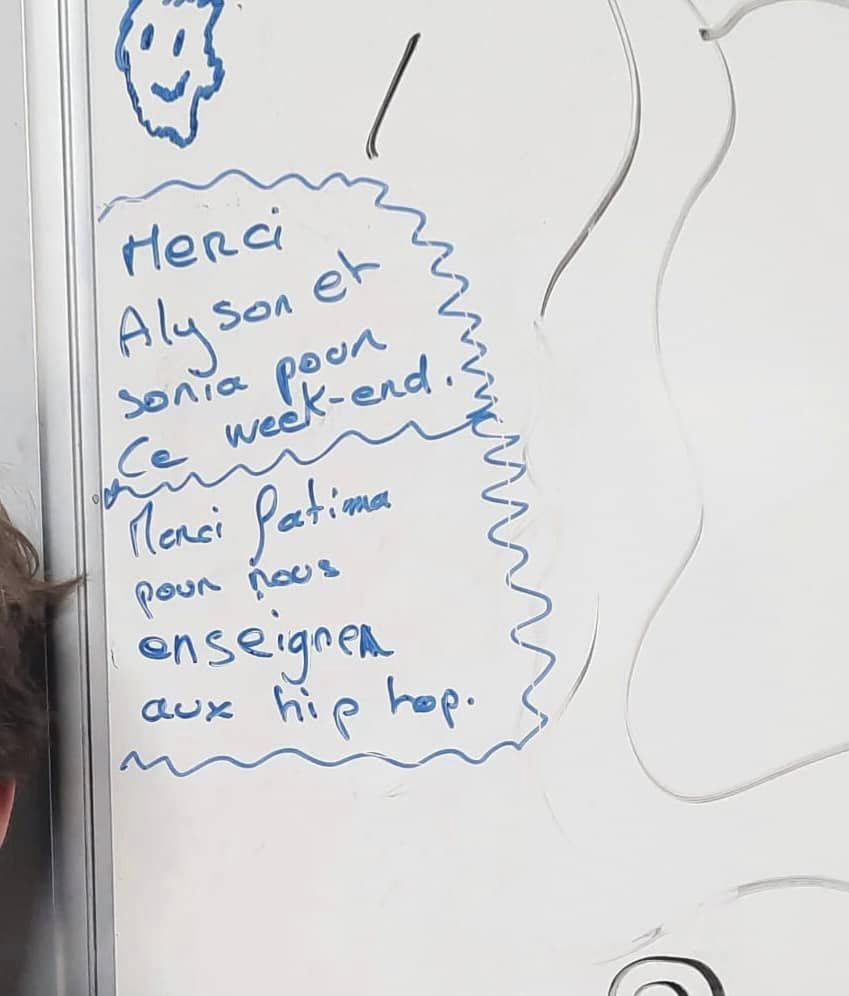 Merci
Alyson et
sonia pour
Ce week-end.
Merci fatima
pour nous
enseigner
aux hip hop.